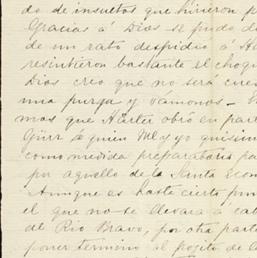 do de insultos que hirieron p
Gracias á Dios se pudo d
de un rato despidio á H
resintieron bastante el choqu
Dios creo que no será cue
una purga y vámonos
mas que Härter obró en part
Gürr á quien Mlos y yo quisim
como medida preparatoria pa
por aquello de la Santa Econ
Aunque es hasta cierto pun
el que no se llevara á cab
del Rio Bravo, por otra parte
poner termino al pojito de l